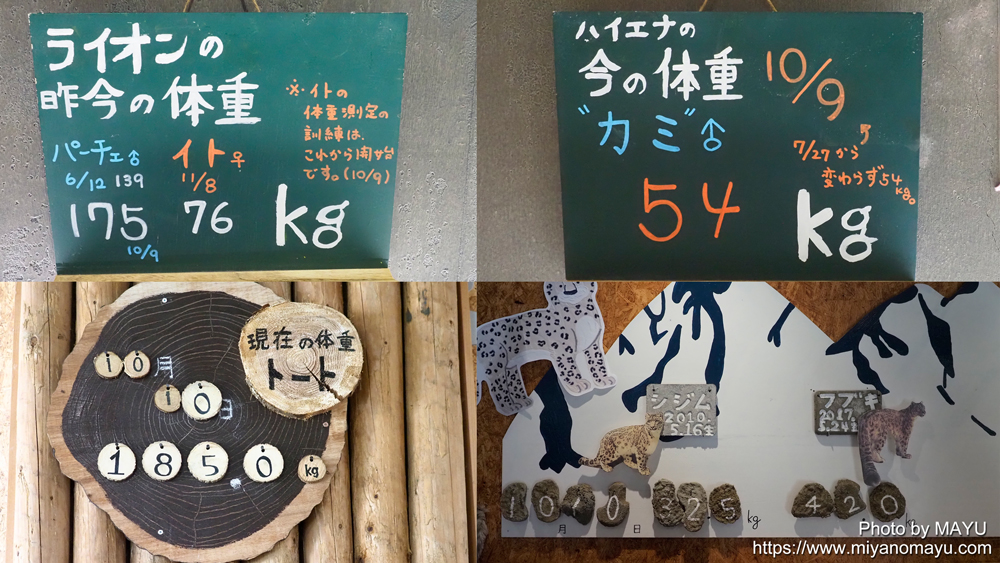 ライオンの
昨今の体重
※イトの
体重測定の
訓練は、
これから開始
です。(10/9)
パーチェ♂
6/12 139
175
10/9
イト♀
11/8
76
kg
ハイエナの
今の体重
10/9
"カミ"♂
7/27から
変わらず54
kg。
54
kg
現在の体重
トート
10月
10日
1850kg
シジム
2010.
5.16生
フブキ
2017.
5.24生
10月10日 32.5kg
42.0
Photo by MAYU
https://www.miyanomayu.com